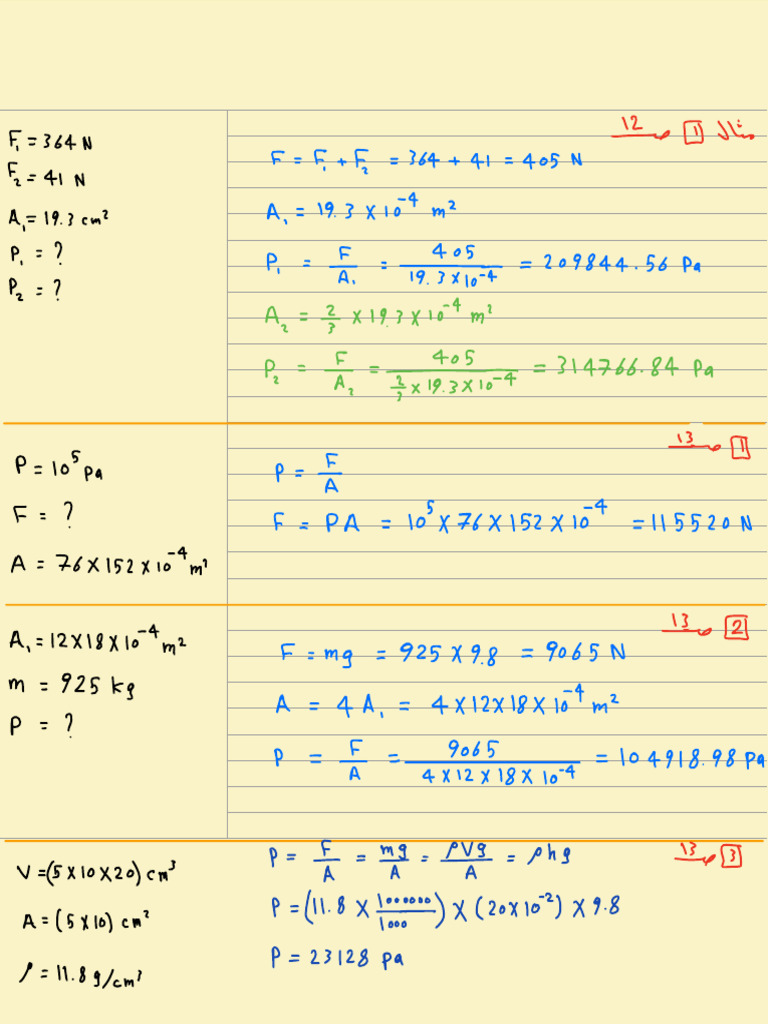 مثال 1 ص 12
F₁ = 364 N
F₂ = 41 N
A₁ = 19.3 cm²
P₁ = ?
P₂ = ?
F = F₁ + F₂ = 364 + 41 = 405 N
A₁ = 19.3 × 10⁻⁴ m²
P₁ = F/A₁ = 405/(19.3 × 10⁻⁴) = 209844.56 Pa
A₂ = 2/3 × 19.3 × 10⁻⁴ m²
P₂ = F/A₂ = 405/(2/3 × 19.3 × 10⁻⁴) = 314766.84 Pa
1 ص 13
P = 10⁵ Pa
F = ?
A = 76 × 152 × 10⁻⁴ m²
P = F/A
F = PA = 10⁵ × 76 × 152 × 10⁻⁴ = 115520 N
2 ص 13
A₁ = 12 × 18 × 10⁻⁴ m²
m = 925 kg
P = ?
F = mg = 925 × 9.8 = 9065 N
A = 4A₁ = 4 × 12 × 18 × 10⁻⁴ m²
P = F/A = 9065/(4 × 12 × 18 × 10⁻⁴) = 104918.98 Pa
3 ص 13
V = (5 × 10 × 20) cm³
A = (5 × 10) cm²
ρ = 11.8 g/cm³
P = F/A = mg/A = ρVg/A = ρhg
P = (11.8 × 1000000/1000) × (20 × 10⁻²) × 9.8
P = 23128 pa